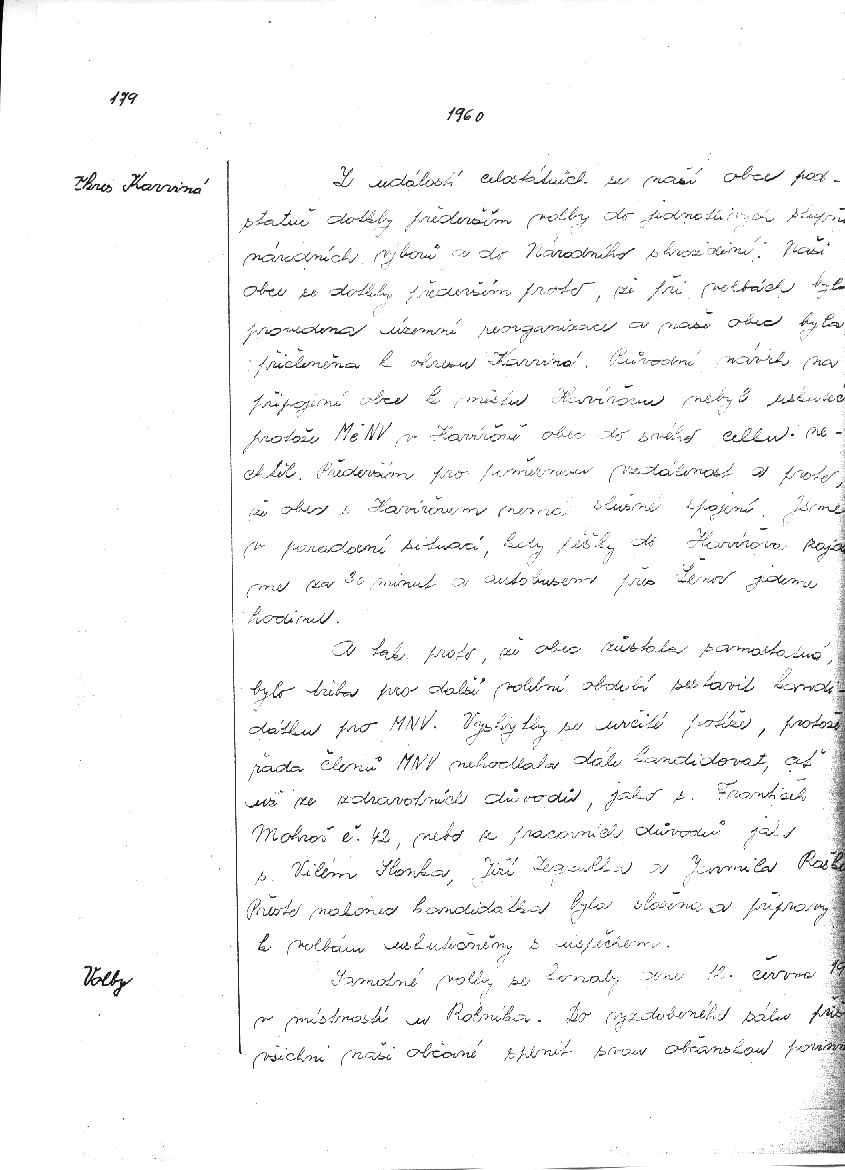 179
1960
Okres Karviná
Z událostí celostátních se naší obce pod-
statně dotkly především volby do jednotlivých stupň
národních výborů a do Národního shromáždění. Naší
obce se dotkly především proto, že při volbách byla
provedena územní reorganizace a naše obec byla
přičleněna k okresu Karviná. Původní návrh na
připojení obce k městu Havířovu nebyl uskuteč
protože MěNV v Havířově obec do svého celku ne-
chtěl. Především pro poměrnou vzdálenost a proto,
že obec s Havířovem nemá slušné spojení. Jsme
v paradoxní situaci, kdy pěšky do Havířova zajd
me za 30 minut a autobusem přes Šenov jedeme
hodinu.
A tak proto, že obec zůstala samostatná,
bylo třeba pro další volební období sestavit kandi-
dátku pro MNV. Vyskytly se určité potíže, protože
řada členů MNV nehodlala dále kandidovat, ať
už ze zdravotních důvodů, jako s. František
Mokroš č. 42, nebo z pracovních důvodů jako
s. Vilém Slonka, Jiří Zegzulka a Jarmila
Přesto nakonec kandidátka byla složena a přípravy
k volbám uskutečněny s úspěchem.
Volby
Samotné volby se konaly dne 12. června 19
v místnosti u Rolníka. Do vyzdobeného sálu přiš
všichni naši občané splnit svou občanskou povinn